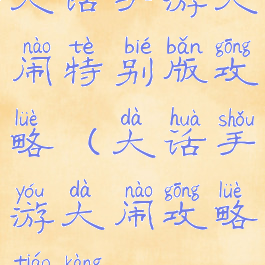 nào tè bié bǎn gōng
闹特别版攻
lüè dà huà shǒu
略（大话手
yóu dà nào gōng lüè
游大闹攻略
tiáo kàng